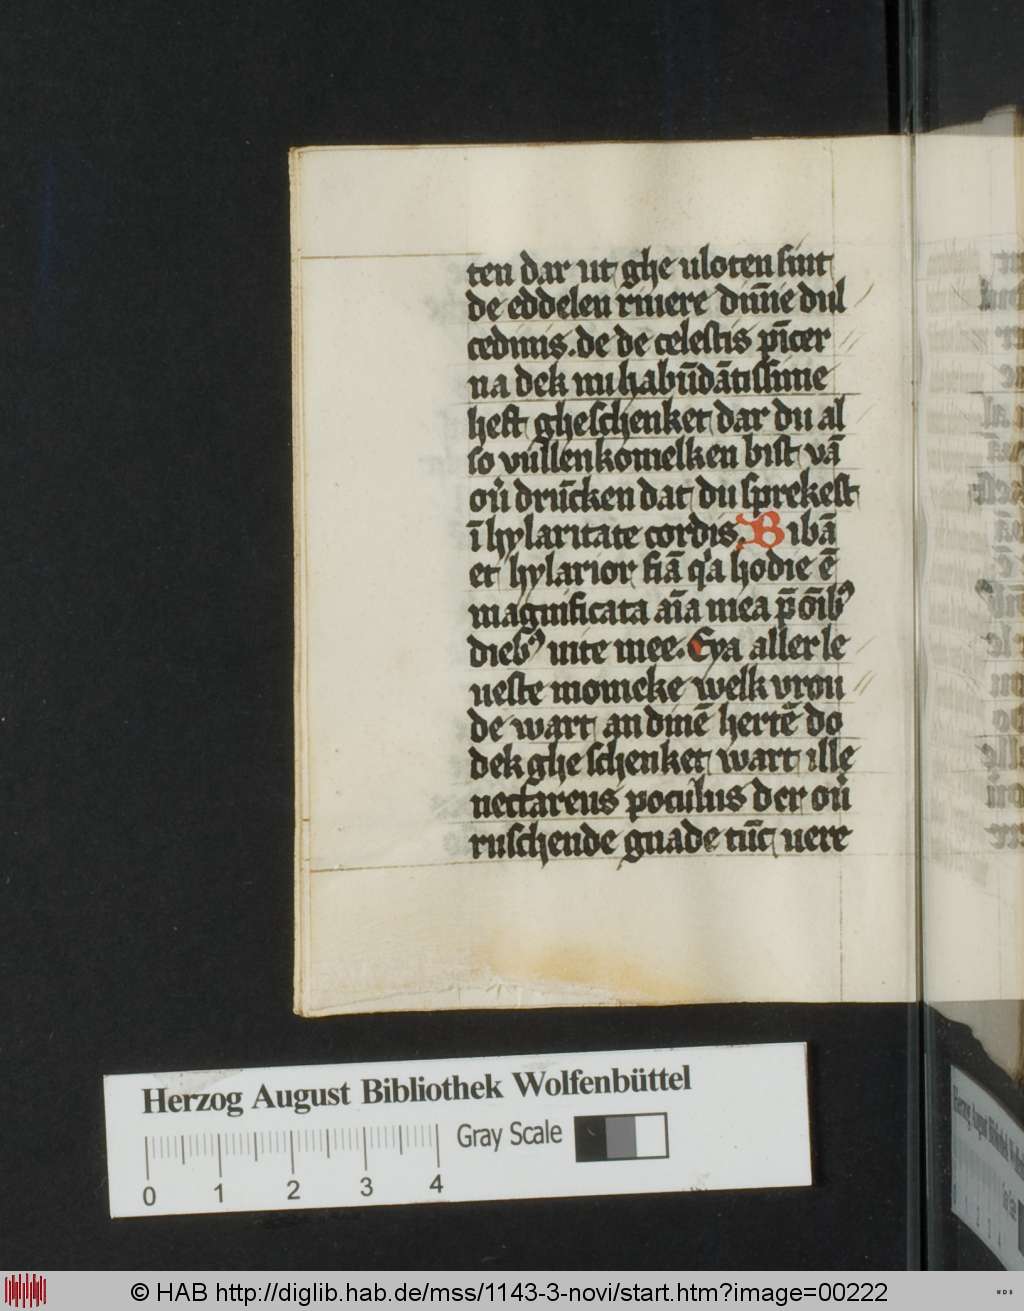 ten dar ut ghe uloten sint
de eddelen riuiere diuīe dul
cedinis. de de celestis pīcer
na dek nu habūdātissime
heft gheschenket dar du al
so vullenkomelken bist vā
ou̅ drūcken dat du sprekest
ī hylaritate cordis. Bibā
et hylarior fiā q̇a hodie ē
magnificata aīa mea p̄ oīb⁹
dieb⁹ uite mee. Eya aller le
ueste monieke welk vrou
de wart an dinē hertē do
dek ghe schenket wart ille
nectareus poculus der ou̅
ruschende gnade tūc uere
Herzog August Bibliothek Wolfenbüttel
Gray Scale
0 1 2 3 4
© HAB http://diglib.hab.de/mss/1143-3-novi/start.htm?image=00222